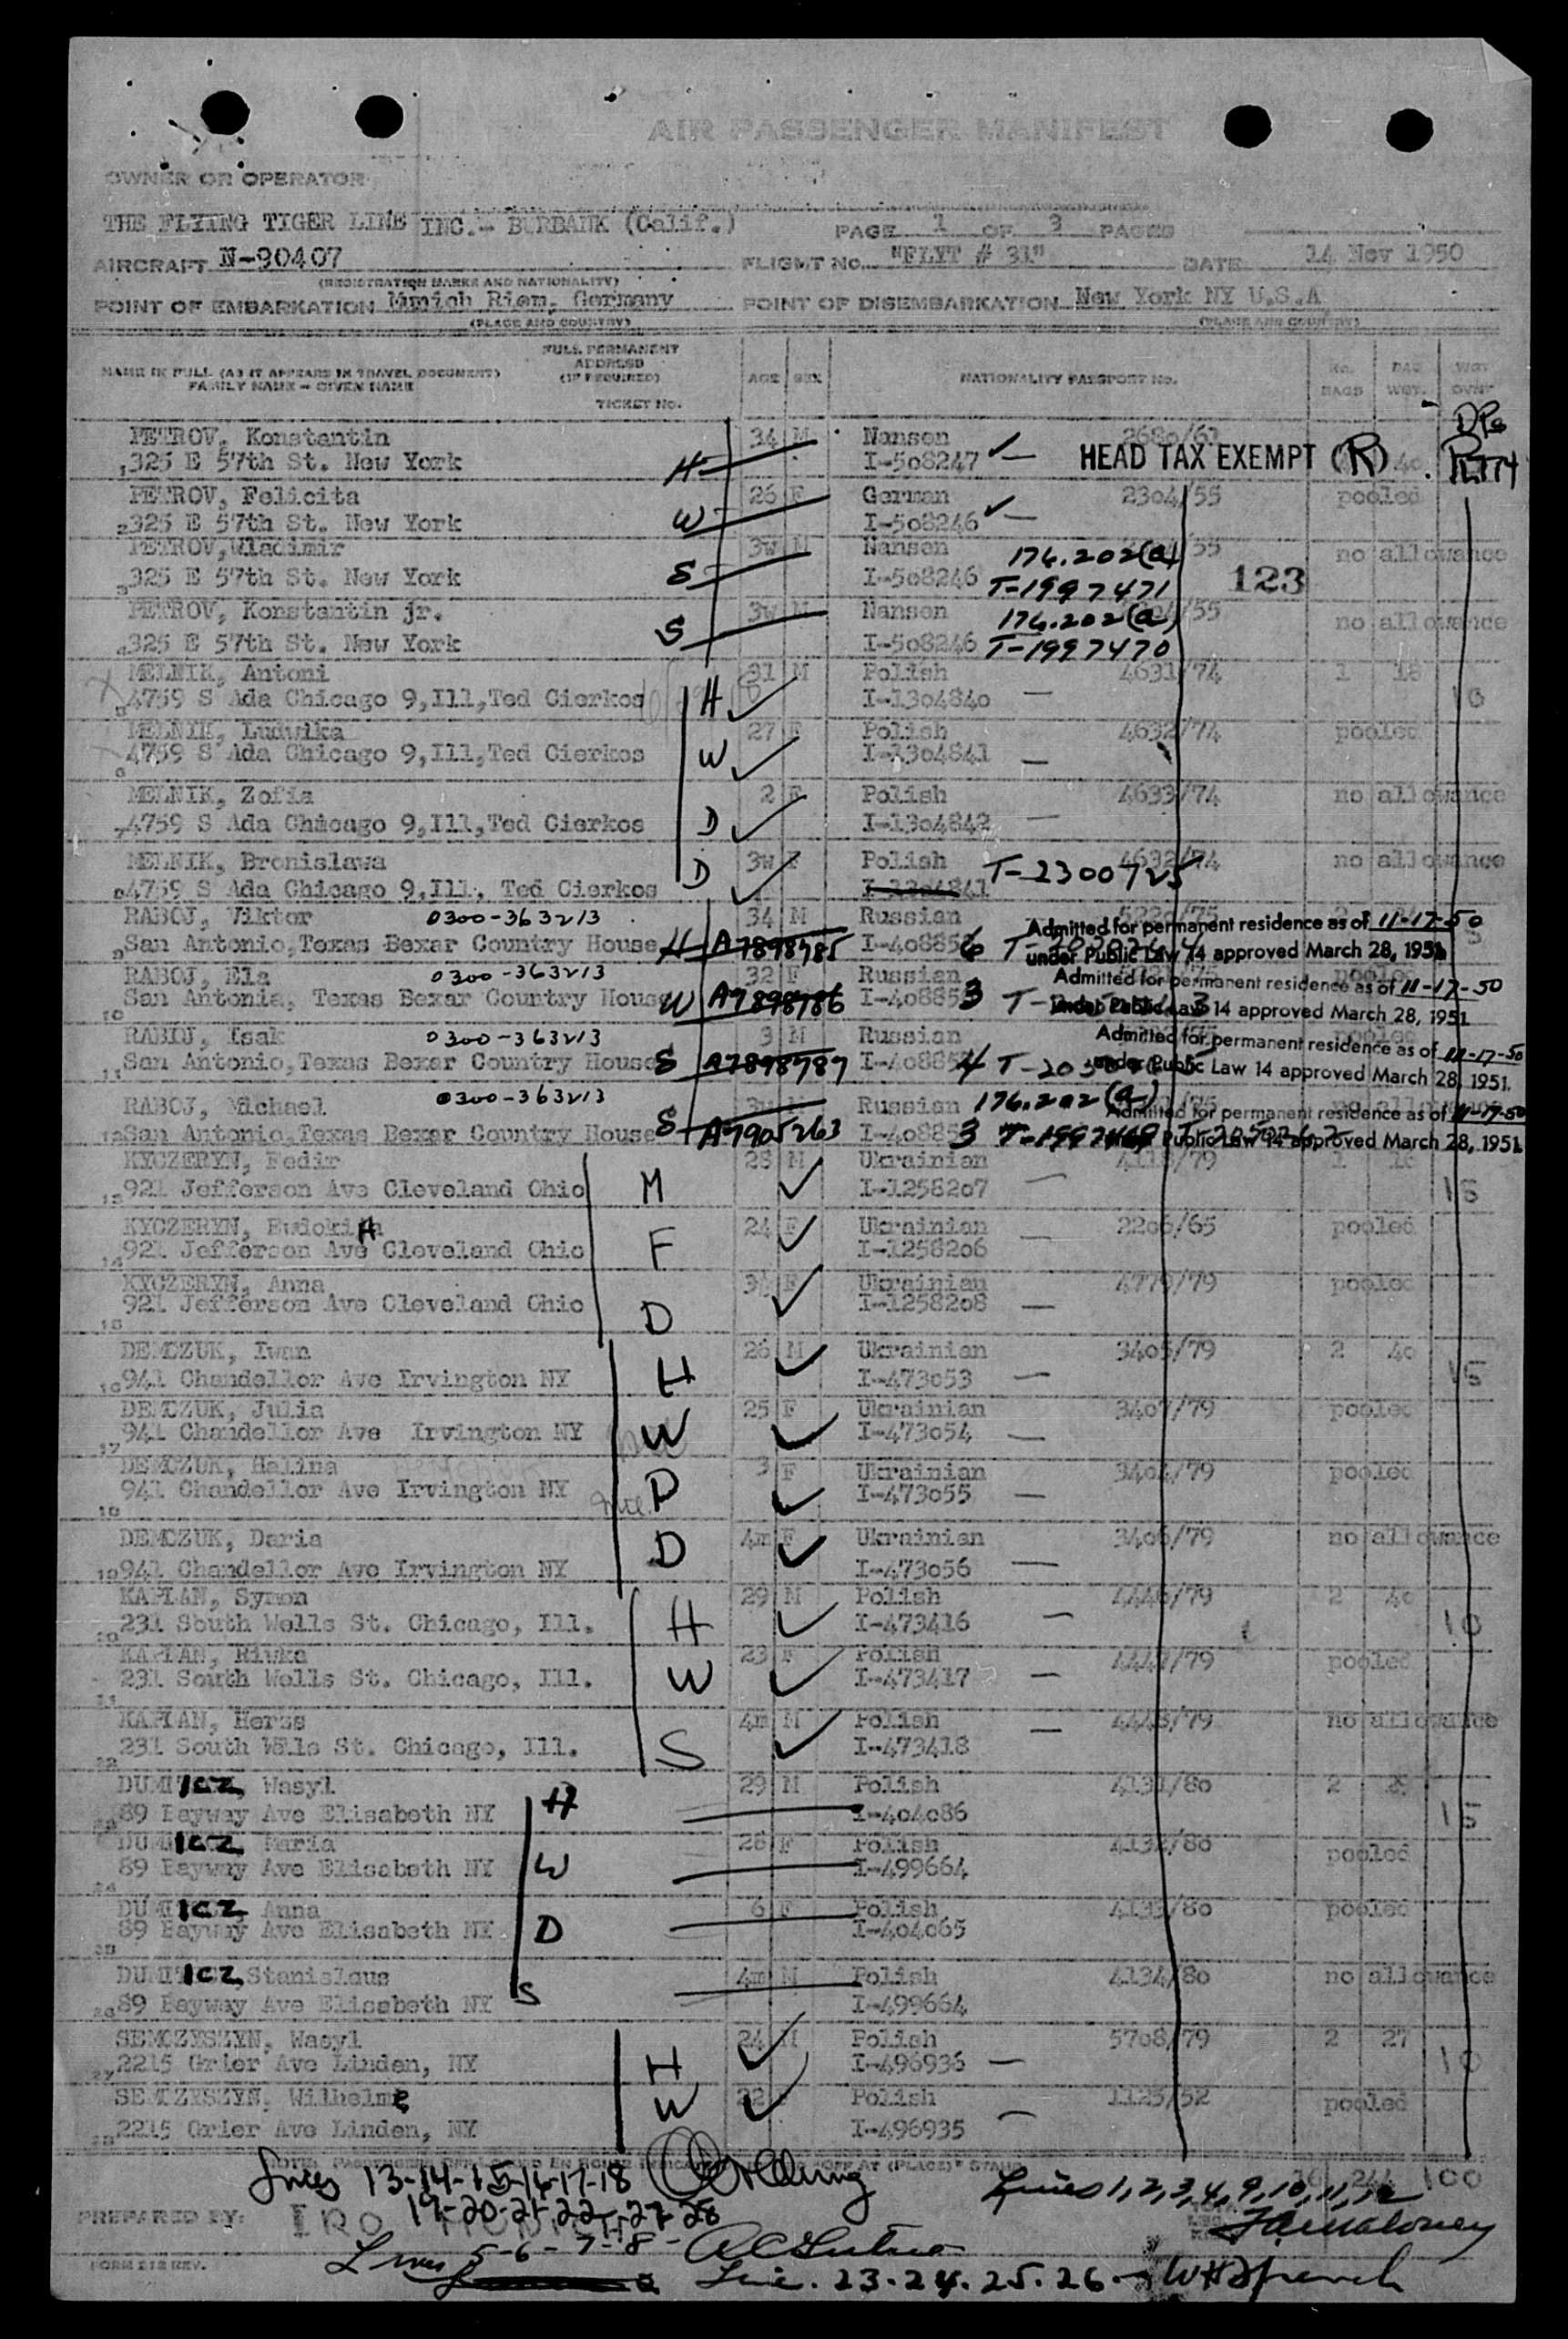 AIR PASSENGER MANIFEST
OWNER OR OPERATOR
THE FLYING TIGER LINE INC.- BURBANK (Calif.) PAGE 1 OF 3 PAGES
AIRCRAFT N-90407 FLIGHT NO. "FLYT # 31" DATE 14 Nov 1950
(REGISTRATION MARKS AND NATIONALITY)
POINT OF EMBARKATION Munich Riem, Germany POINT OF DISEMBARKATION New York NY U.S.A
(PLACE AND COUNTRY) (PLACE AND COUNTRY)
NAME IN FULL (AS IT APPEARS IN TRAVEL DOCUMENT) FAMILY NAME - GIVEN NAME FULL PERMANENT ADDRESS (IF REQUIRED) TICKET NO. AGE SEX NATIONALITY PASSPORT NO. NO. BAGS BAG WGT.
DPs
PETROV, Konstantin 34 M Nansen 2680/61
1 325 E 57th St. New York H I-508247 HEAD TAX EXEMPT (R)
PETROV, Felicita 26 F German 2304/55 pooled
2 325 E 57th St. New York W I-508246
PETROV, Wladimir 3w M Nansen 176.202(a) /55 no allowance
3 325 E 57th St. New York S I-508246 T-1997471 123
PETROV, Konstantin jr. 3w M Nansen 176.202(a) /55 no allowance
4 325 E 57th St. New York S I-508246 T-1997470
MELNIK, Antoni 31 M Polish 4631/74 1 18
5 4759 S Ada Chicago 9,Ill,Ted Cierkos H I-1304840 10
MELNIK, Ludwika 27 F Polish 4632/74 pooled
6 4759 S Ada Chicago 9,Ill,Ted Cierkos W I-1304841
MELNIK, Zofia 2 F Polish 4633/74 no allowance
7 4759 S Ada Chicago 9,Ill,Ted Cierkos D I-1304842
MELNIK, Bronislawa 3w F Polish 4632/74 no allowance
8 4759 S Ada Chicago 9,Ill, Ted Cierkos D I-1304841 T-2300725
RABOJ, Viktor 0300-363213 34 M Russian Admitted for permanent residence as of 11-17-50
9 San Antonio,Texas Bexar Country House H A7898785 I-40885 6 under Public Law 14 approved March 28, 1951
RABOJ, Ela 0300-363213 32 F Russian Admitted for permanent residence as of 11-17-50
10 San Antonia, Texas Bexar Country House W A7898786 I-40885 3 under Public Law 14 approved March 28, 1951
RABIJ, Isak 0300-363213 3 M Russian Admitted for permanent residence as of 11-17-50
11 San Antonio,Texas Bexar Country House S A7898787 I-40885 4 under Public Law 14 approved March 28, 1951.
RABOJ, Michael 0300-363213 3w M Russian 176.202(a) Admitted for permanent residence as of 11-17-50
12 San Antonio,Texas Bexar Country House S A7905263 I-40885 3 T-1997469 Public Law 14 approved March 28, 1951
KYCZERYN, Fedir 28 M Ukrainian /79 1
13 921 Jefferson Ave Cleveland Ohio M I-1258207 15
KYCZERYN, Eudokiha 24 F Ukrainian 2206/65 pooled
14 921 Jefferson Ave Cleveland Ohio F I-1258206
KYCZERYN, Anna F Ukrainian 4779/79 pooled
15 921 Jefferson Ave Cleveland Ohio D I-1258208
DEMCZUK, Iwan 26 M Ukrainian 3405/79 2 40
16 941 Chandellor Ave Irvington NY H I-473053 15
DEMCZUK, Julia 25 F Ukrainian 3407/79 pooled
17 941 Chandellor Ave Irvington NY W I-473054
DEMCZUK, Halina 3 F Ukrainian 3404/79 pooled
18 941 Chandellor Ave Irvington NY D I-473055
DEMCZUK, Daria 4m F Ukrainian 3406/79 no allowance
19 941 Chandellor Ave Irvington NY D I-473056
KAPLAN, Symon 29 M Polish 4446/79 2 40
20 231 South Wells St. Chicago, Ill. H I-473416 10
KAPLAN, Riwka 23 F Polish 4447/79 pooled
21 231 South Wells St. Chicago, Ill. W I-473417
KAPLAN, Hersz 4m M Polish 4448/79 no allowance
22 231 South Wells St. Chicago, Ill. S I-473418
DUMICZ, Wasyl 29 M Polish 4131/80 2
23 89 Bayway Ave Elisabeth NY H I-404086 15
DUMICZ, Maria 28 F Polish 4132/80 pooled
24 89 Bayway Ave Elisabeth NY W I-499664
DUMICZ, Anna 6 F Polish 4133/80 pooled
25 89 Bayway Ave Elisabeth NY D I-404065
DUMICZ, Stanislaus 4m M Polish 4134/80 no allowance
26 89 Bayway Ave Elisabeth NY S I-499664
SEMCZYSZYN, Wasyl 24 M Polish 5708/79 2 27
27 2215 Grier Ave Linden, NY H I-496936 10
SEMCZYSZYN, Wilhelme 22 Polish 1125/52 pooled
28 2215 Grier Ave Linden, NY W I-496935
Lines 13-14-15-16-17-18 Lines 1,2,3,4,9,10,11,12 100
19-20-21-22-27-28
PREPARED BY: IRO
Lines 5-6-7-8-
FORM 212 REV. Line. 23.24.25.26.